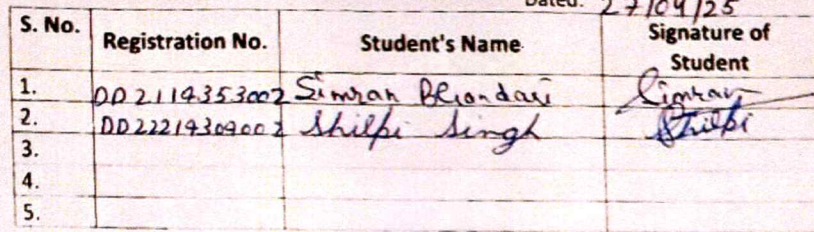 Dated: 27/04/25
S. No. Registration No. Student's Name Signature of Student
1. DD2114353002 Simran Bhandari Simran
2. DD22214309002 Shilpi Singh Shilpi
3.
4.
5.